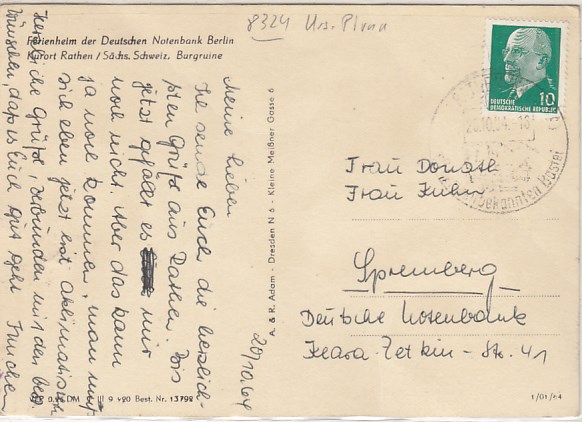 8324 Urs. Pirna
Ferienheim der Deutschen Notenbank Berlin
Kurort Rathen / Sächs. Schweiz, Burgruine
20/10.64
Meine Lieben
Ich sende Euch die herzlich-
sten Grüße aus Rathen. Bis
jetzt gefällt es mir
noch nicht. Aber das kann
ja noch kommen, man muß
sich eben jetzt erst aklimatisieren
Herzliche Grüße, verbunden mit den besten
Wünschen, daß es Euch gut geht
A. & R. Adam - Dresden N 6 - Kleine Meißner Gasse 6
DEUTSCHE
DEMOKRATISCHE REPUBLIK
10
20.10.64
unbekannten Bastei
Frau Donath
Frau Kuhn
Spremberg
Deutsche Notenbank
Klara-Zetkin-Str. 41
DM III 9 v20 Best. Nr. 13792
1/01/64